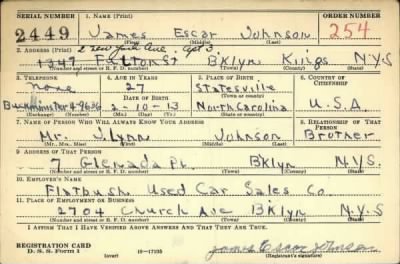 SERIAL NUMBER 1. NAME (Print) ORDER NUMBER
2449 James Escar Johnson 254
(First) (Middle) (Last)
2. ADDRESS (Print) 2 New York Ave Apt 3
1347 Fulton St BKlyn Kings N.Y.S
(Number and street or R. F. D. number) (Town) (County) (State)
3. TELEPHONE 4. AGE IN YEARS 5. PLACE OF BIRTH 6. COUNTRY OF CITIZENSHIP
None 27 Statesville
DATE OF BIRTH (Town or county)
Buckminster 4-9636 2-10-13 North Carolina U.S.A.
(Exchange) (Number) (Mo.) (Day) (Yr.) (State or country)
7. NAME OF PERSON WHO WILL ALWAYS KNOW YOUR ADDRESS 8. RELATIONSHIP OF THAT PERSON
Mr. Johnson Brother
(Mr., Mrs., Miss) (First) (Middle) (Last)
9. ADDRESS OF THAT PERSON
7 Glenada Pl. BKlyn N.Y.S.
(Number and street or R. F. D. number) (Town) (County) (State)
10. EMPLOYER'S NAME
Flatbush Used Car Sales Co
11. PLACE OF EMPLOYMENT OR BUSINESS
2704 Church Ave BKlyn N.Y.S
(Number and street or R. F. D. number) (Town) (County) (State)
I AFFIRM THAT I HAVE VERIFIED ABOVE ANSWERS AND THAT THEY ARE TRUE.
REGISTRATION CARD
D. S. S. Form 1 (over) 16—17105 James Escar Johnson
(Registrant's signature)